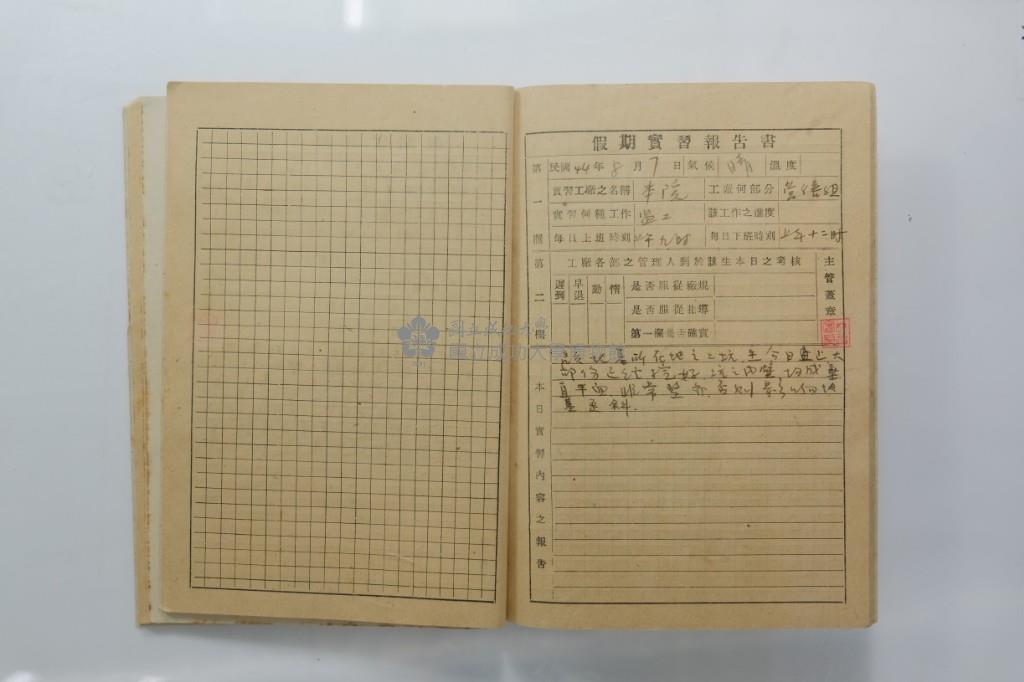 假期實習報告書
第一欄
民國44年8月7日氣候 晴 溫度
實習工廠之名稱 本院 工廠何部分 營繕組
實習何種工作 監工 該工作之進度
每日上班時刻 上午九時 每日下班時刻 上午十二時
第二欄
工廠各部之管理人對於該生本日之考核
遲到 早退 勤 惰
是否服從廠規
是否服從指導
第一欄是否確實
主管蓋章
國立成功大學
國立成功大學博物館
本日實習內容之報告
地基所在地之土坑,至今日止大
部份已經挖好,坑之內壁,切成整
直平面,非常整齊,否則影响地
基至料